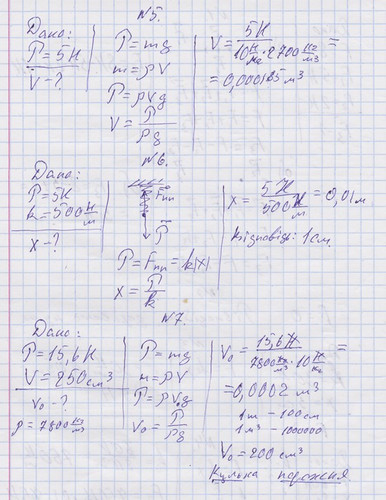 №5.
Дано:
P = 5Н
V - ?
P = mg
m = ρV
P = ρVg
V = P/ρg
V = 5Н / (10 Н/кг · 2700 кг/м³) =
= 0,000185 м³
№6.
Дано:
P = 5Н
k = 500 Н/м
x - ?
Fпр
P
P = Fпр = k|x|
x = P/k
x = 5Н / 500 Н/м = 0,01 м
Відповідь: 1см.
№7.
Дано:
P = 15,6Н
V = 250 см³
V₀ - ?
ρ = 7800 кг/м³
P = mg
m = ρV
P = ρV₀g
V₀ = P/ρg
V₀ = 15,6 Н / (7800 кг/м³ · 10 Н/кг) =
= 0,0002 м³
1м - 100см
1м³ - 1000000
V₀ = 200 см³
Кулька порожня.